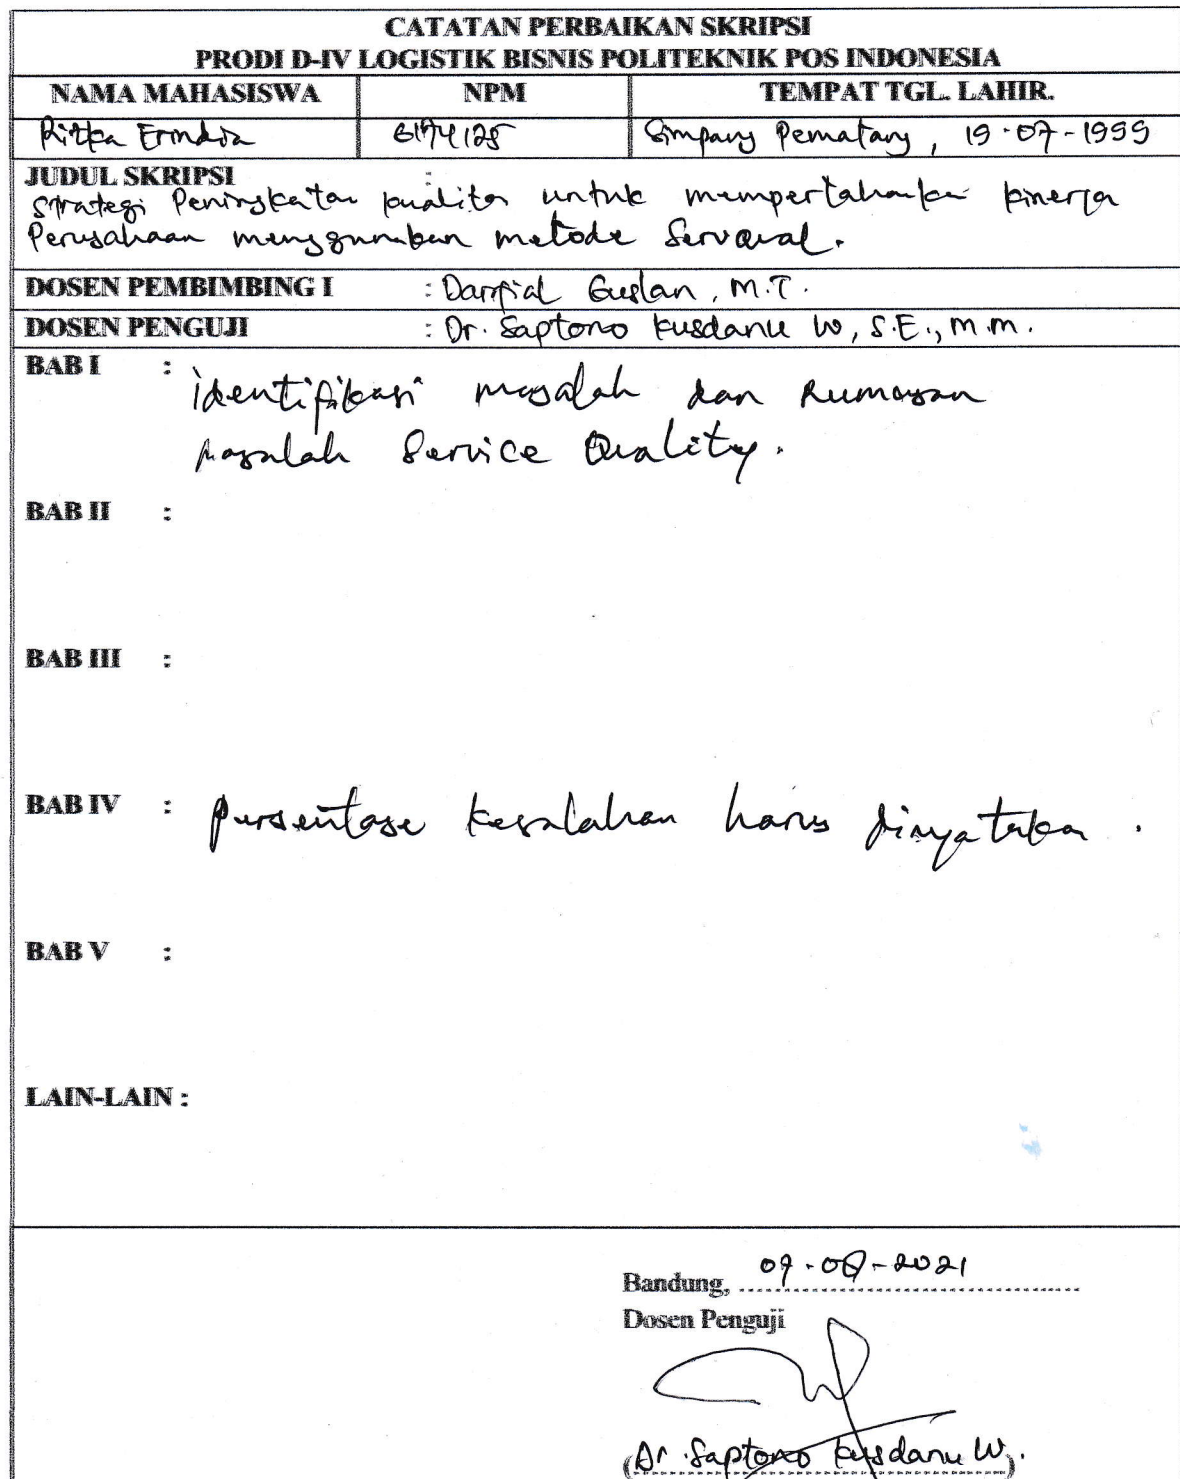 CATATAN PERBAIKAN SKRIPSI
PRODI D-IV LOGISTIK BISNIS POLITEKNIK POS INDONESIA
NAMA MAHASISWA NPM TEMPAT TGL. LAHIR.
Rizka Erindia 6174125 Simpang Pematang, 19-07-1999
JUDUL SKRIPSI :
Strategi Peningkatan kualitas untuk mempertahankan kinerja
Perusahaan menggunakan metode Servqual.
DOSEN PEMBIMBING I : Darfial Guslan, M.T.
DOSEN PENGUJI : Dr. Saptono Kusdanu W, S.E., M.M.
BAB I : identifikasi masalah dan Rumusan
masalah Service Quality.
BAB II :
BAB III :
BAB IV : persentase kesalahan harus dinyatakan.
BAB V :
LAIN-LAIN :
Bandung, 09-2021
Dosen Penguji
(Dr. Saptono Kusdanu W).